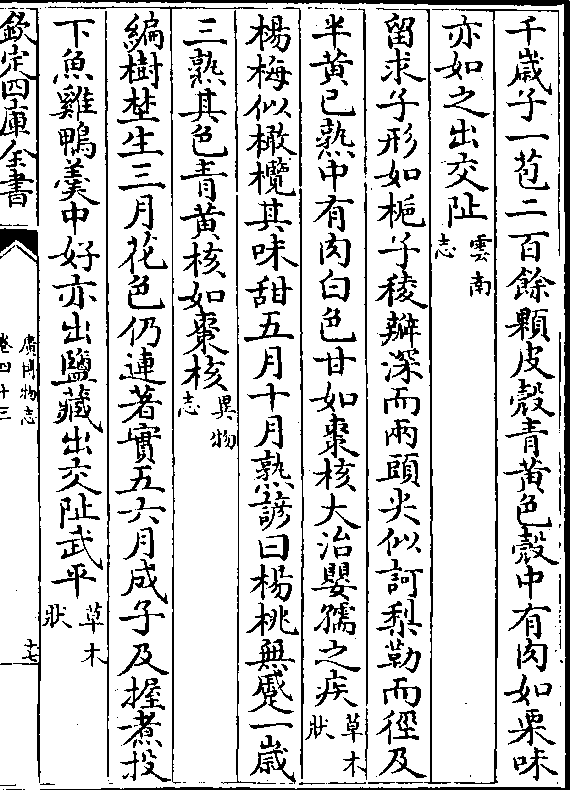 千歳子一苞二百餘顆皮殻青黄色殻中有肉如栗味
亦如之出交阯雲南志
留求子形如梔子稜瓣深而兩頭尖似訶梨勒而徑及
半黄已熟中有肉白色甘如棗核大治嬰孺之疾草木狀
楊梅似橄欖其味甜五月十月熟諺曰楊桃無蹙一歳
三熟其色青黄核如棗核異物志
編樹埜生三月花色仍連著實五六月成子及握煮投
下魚雞鴨羮中好亦出鹽藏出交阯武平草木狀
欽定四庫全書
廣博物志
卷四十三
十七